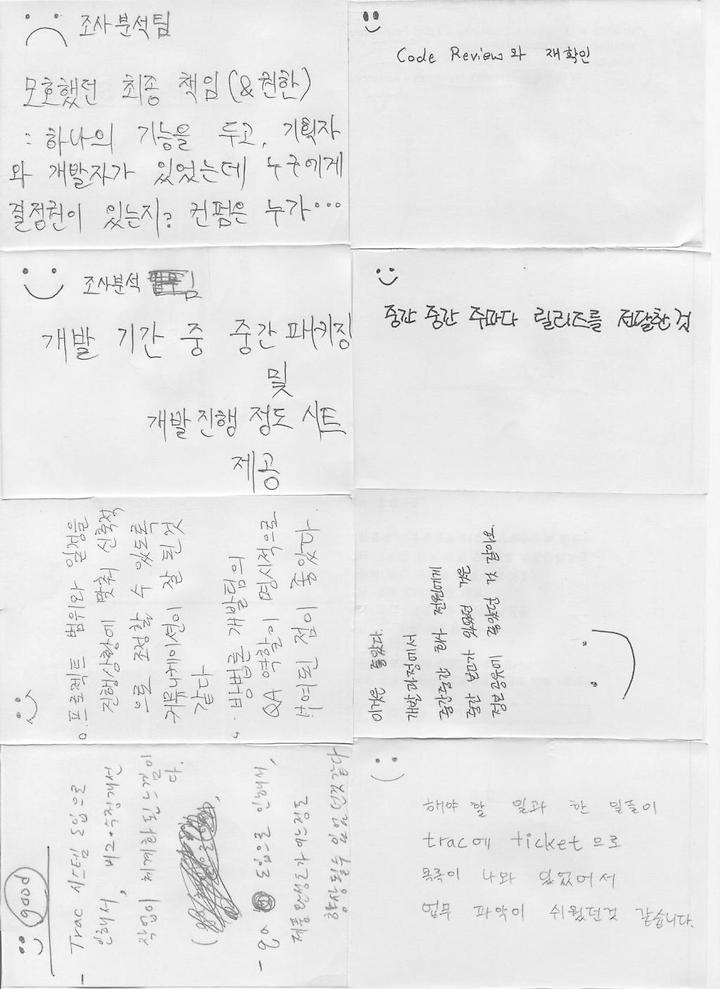 조사분석팀
모호했던 최종 책임(&권한)
: 하나의 기능을 두고, 기획자
와 개발자가 있었는데 누구에게
결정권이 있는지? 컨펌은 누가…
Code Review와 재확인
조사분석 팀
개발 기간 중 중간 패키징
및
개발진행 정도 시트
제공
중간 중간 주마다 릴리즈를 전달한 것
프로젝트 범위와 일정을
진행상황에 맞춰 신축적
으로 조정할 수 있도록
커뮤니케이션이 잘 된것
같다
방법론 개발팀의
QA 역할이 명시적으로
부여된 점이 좋았다
이것은 좋았다.
개발과정에서
중간중간 회사 전원에게
중간 보고가 있었던 것은
정보공유에 좋았던 것 같네요
Good
- Trac 시스템 도입으로
인해서, 버그수정개선
작업이 체계화된점이
다.
- QA 도입으로 인해서,
제품 완성도가 어느정도
향상될수 있었던것같다
해야 할 일과 한 일들이
trac에 ticket으로
목록이 나와 있었어서
업무 파악이 쉬웠던것 같습니다.